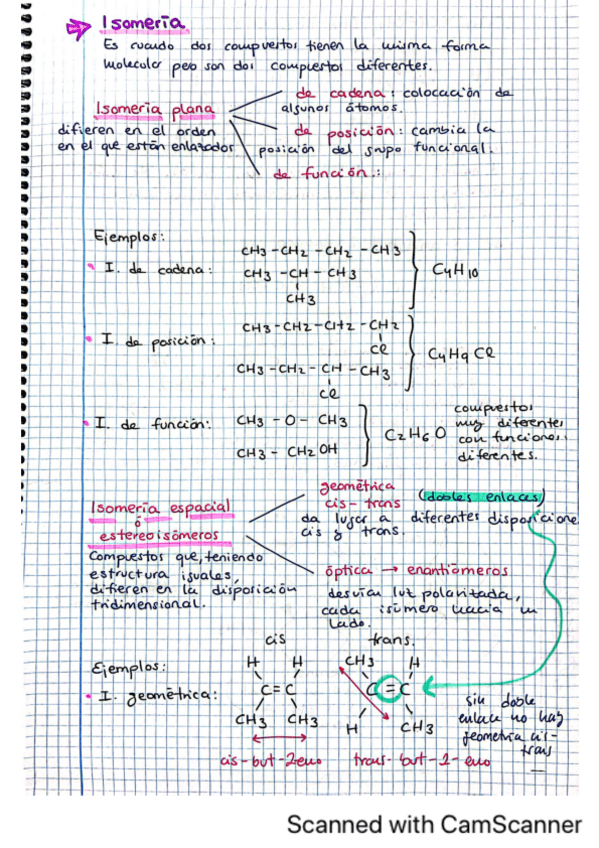 Isomería
Es cuando dos compuestos tienen la misma forma
molecular pero son dos compuestos diferentes.
Isomería plana
difieren en el orden
en el que están enlazados
de cadena: colocación de
algunos átomos.
de posición: cambia la
posición del grupo funcional.
de función.:
Ejemplos:
I. de cadena:
CH3 - CH2 - CH2 - CH3
CH3 - CH - CH3
CH3
C4H10
I. de posición:
CH3 - CH2 - CH2 - CH2
Cl
CH3 - CH2 - CH - CH3
Cl
C4H9Cl
I. de función:
CH3 - O - CH3
CH3 - CH2OH
C2H6O
compuestos
muy diferentes
con funciones
diferentes.
Isomería espacial
ó
estereoisómeros
Compuestos que, teniendo
estructura iguales,
difieren en la disposición
tridimensional.
geométrica
cis - trans (dobles enlaces)
da lugar a diferentes disposiciones
cis y trans.
óptica → enantiómeros
desvían luz polarizada,
cada isómero hacia un
lado.
Ejemplos:
I. geométrica:
cis
H H
C = C
CH3 CH3
cis - but - 2eno
trans.
CH3 H
C = C
H CH3
trans - but - 2 - eno
sin doble
enlace no hay
geometría cis-
trans
Scanned with CamScanner